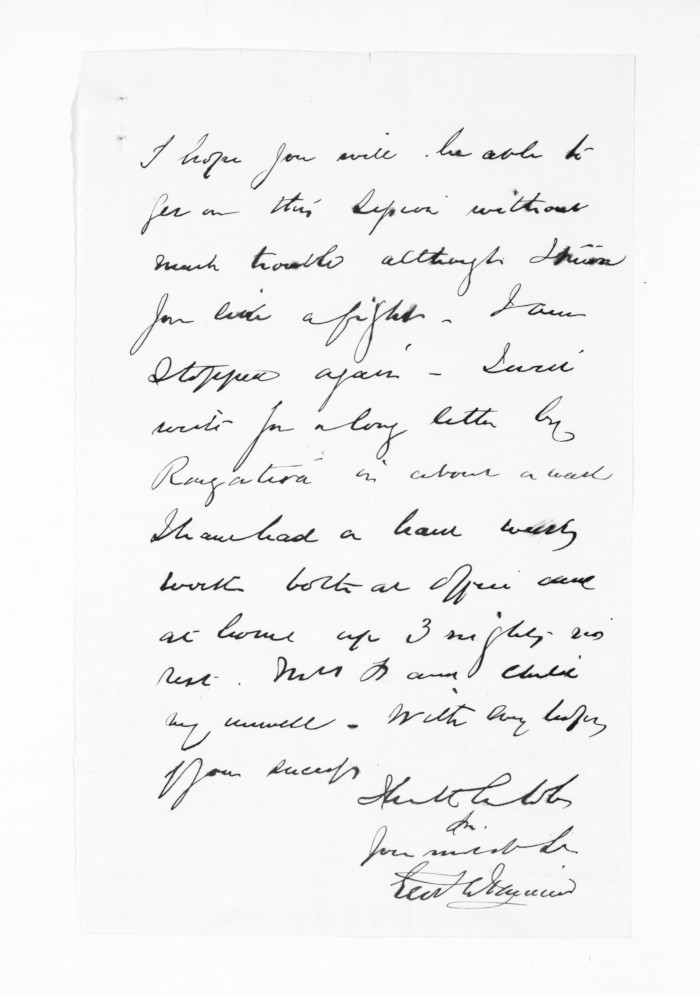 I hope you will be able to
get on this Session without
much trouble although I think
you like a fight - I am
stopped again - I will
write you a long letter by
Rangatira in about a week
I have had a hard weeks
work both at Office and
at home up 3 nights no
rest. Mrs F and child
very unwell - With every hope
of your success
I have the honor to be
Sir
Your most obt